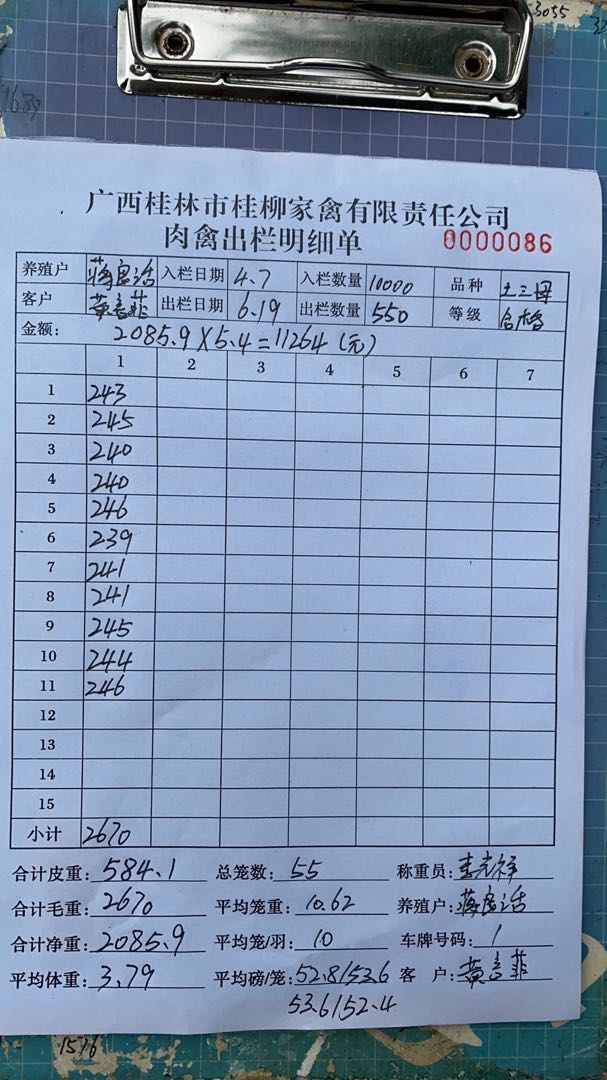 3055
广西桂林市桂柳家禽有限责任公司
肉禽出栏明细单 0000086
养殖户 蒋良活 入栏日期 4.7 入栏数量 10000 品种 土三母
客户 黄彦菲 出栏日期 6.19 出栏数量 550 等级 合格
金额: 2085.9×5.4=11264(元)
1 2 3 4 5 6 7
1 243
2 245
3 240
4 240
5 246
6 239
7 241
8 241
9 245
10 244
11 246
12
13
14
15
小计 2670
合计皮重: 584.1 总笼数: 55 称重员: 李光祥
合计毛重: 2670 平均笼重: 10.62 养殖户: 蒋良活
合计净重: 2085.9 平均笼/羽: 10 车牌号码: 1
平均体重: 3.79 平均磅/笼: 52.8153.6 客 户: 黄彦菲
53.6152.4
1576